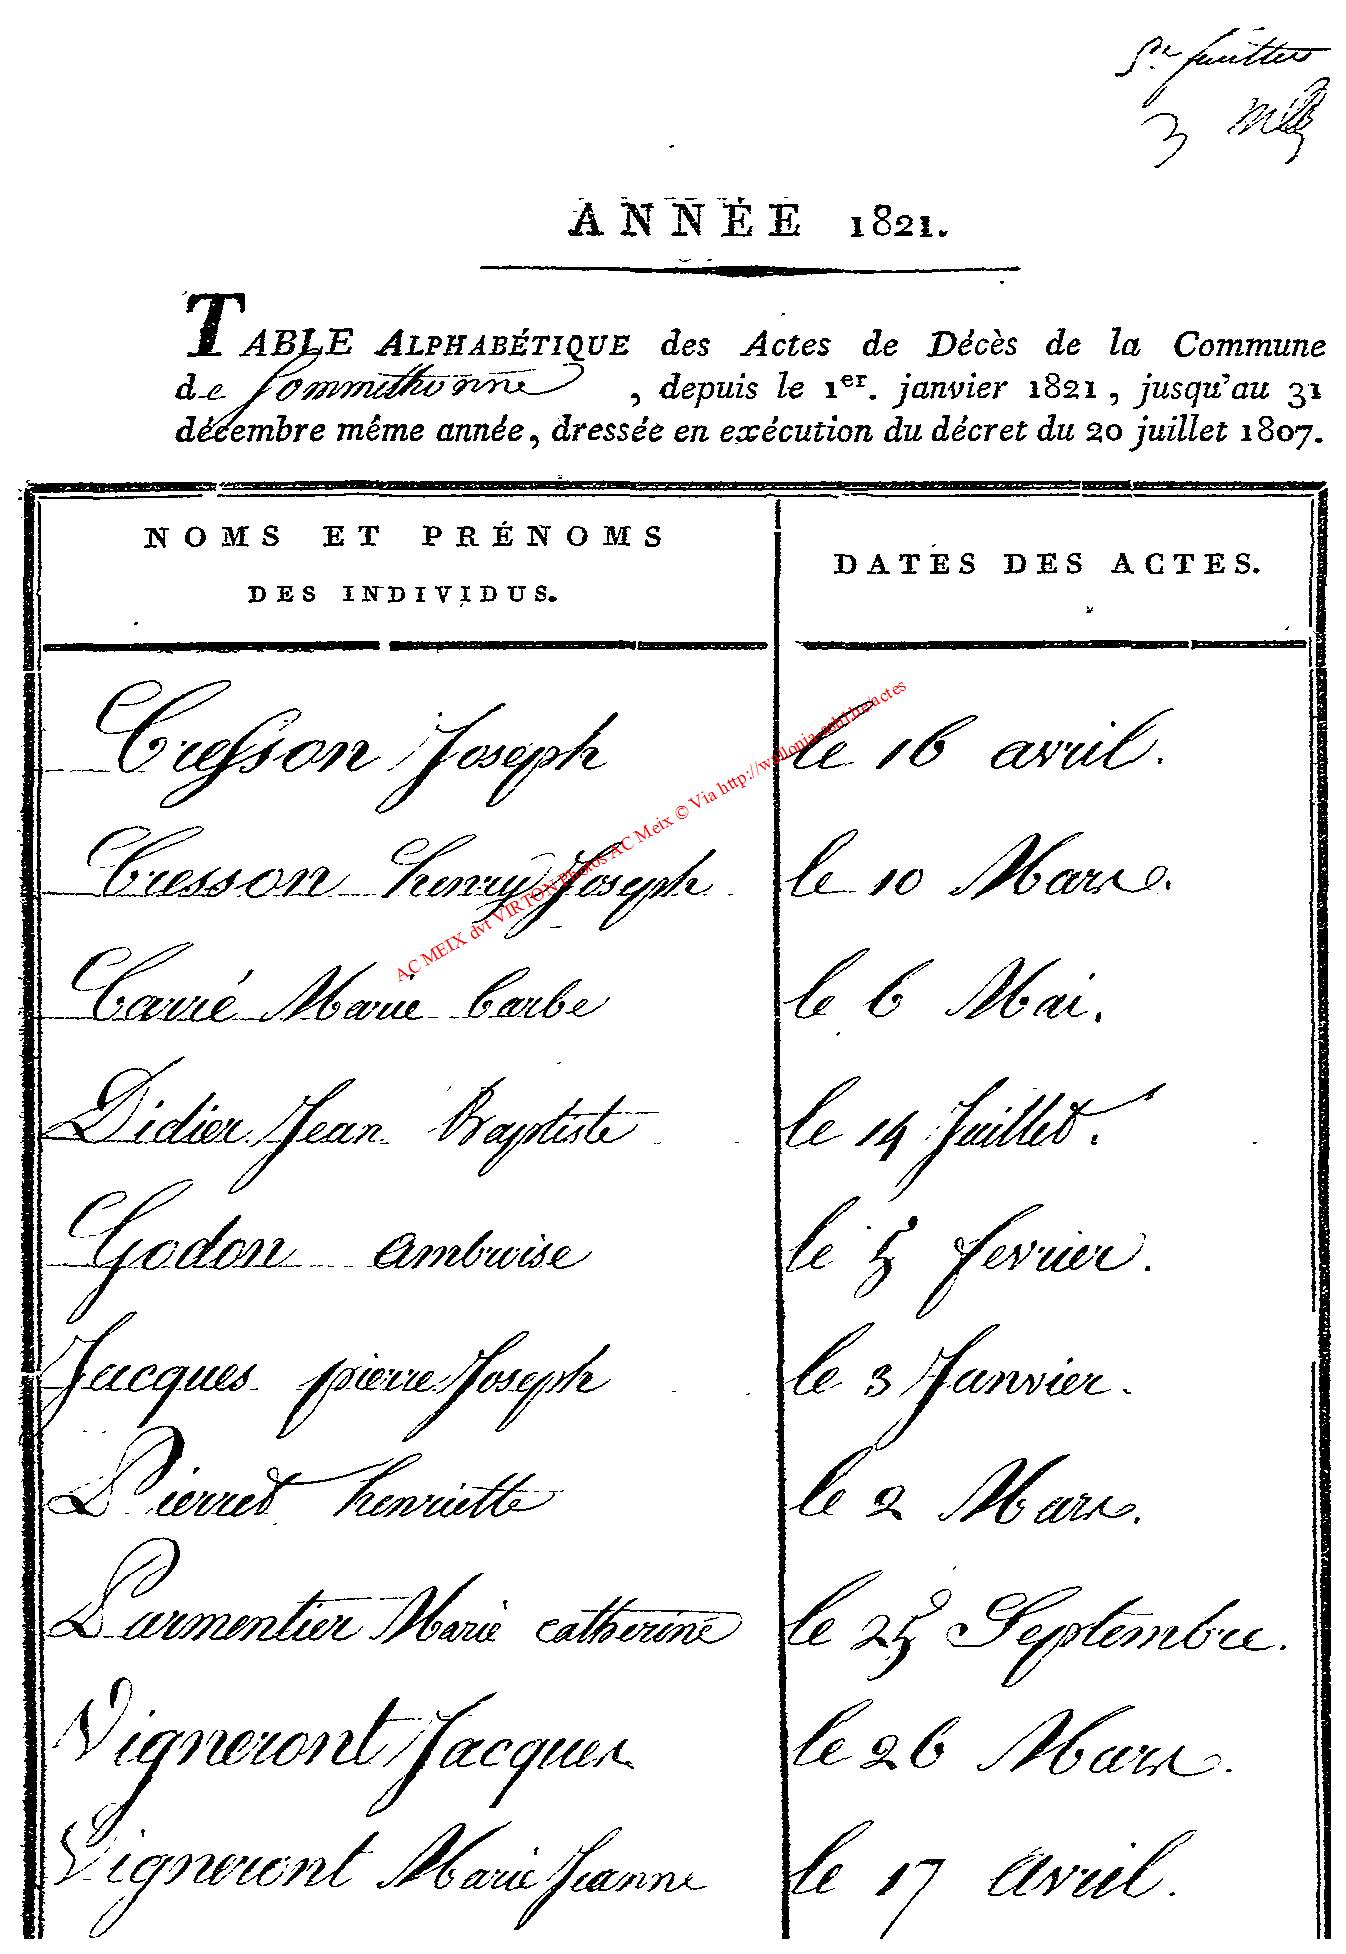 5me feuillet
3
ANNÉE 1821.
TABLE ALPHABÉTIQUE des Actes de Décès de la Commune
de Sommethonne, depuis le 1er. janvier 1821, jusqu'au 31
décembre même année, dressée en exécution du décret du 20 juillet 1807.
NOMS ET PRÉNOMS
DES INDIVIDUS.
DATES DES ACTES.
Cresson Joseph le 16 avril.
Cresson henry Joseph le 10 Mars.
Carré Marie barbe le 6 Mai.
Didier Jean Baptiste le 14 Juillet.
Godon ambroise le 5 fevrier.
Jacques pierre Joseph le 3 Janvier.
Pierret henriette le 2 Mars.
Parmentier Marie catherine le 25 Septembre.
Vigneront Jacques le 26 Mars.
Vigneront Marie Jeanne le 17 avril.
AC MEIX dvt VIRTON Photos AC Meix © Via http://wallonia-asbl.be/actes